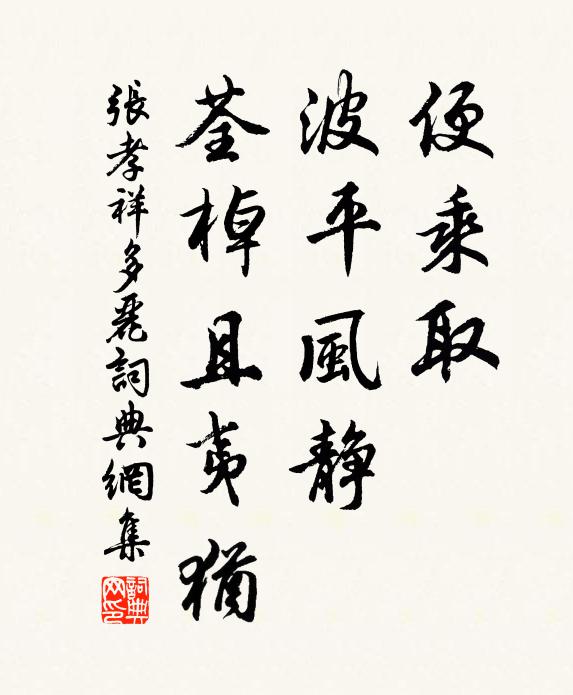 便乘取
波平風静
荃棹且夷猶
張孝祥多麗詞典網集
詞典网印